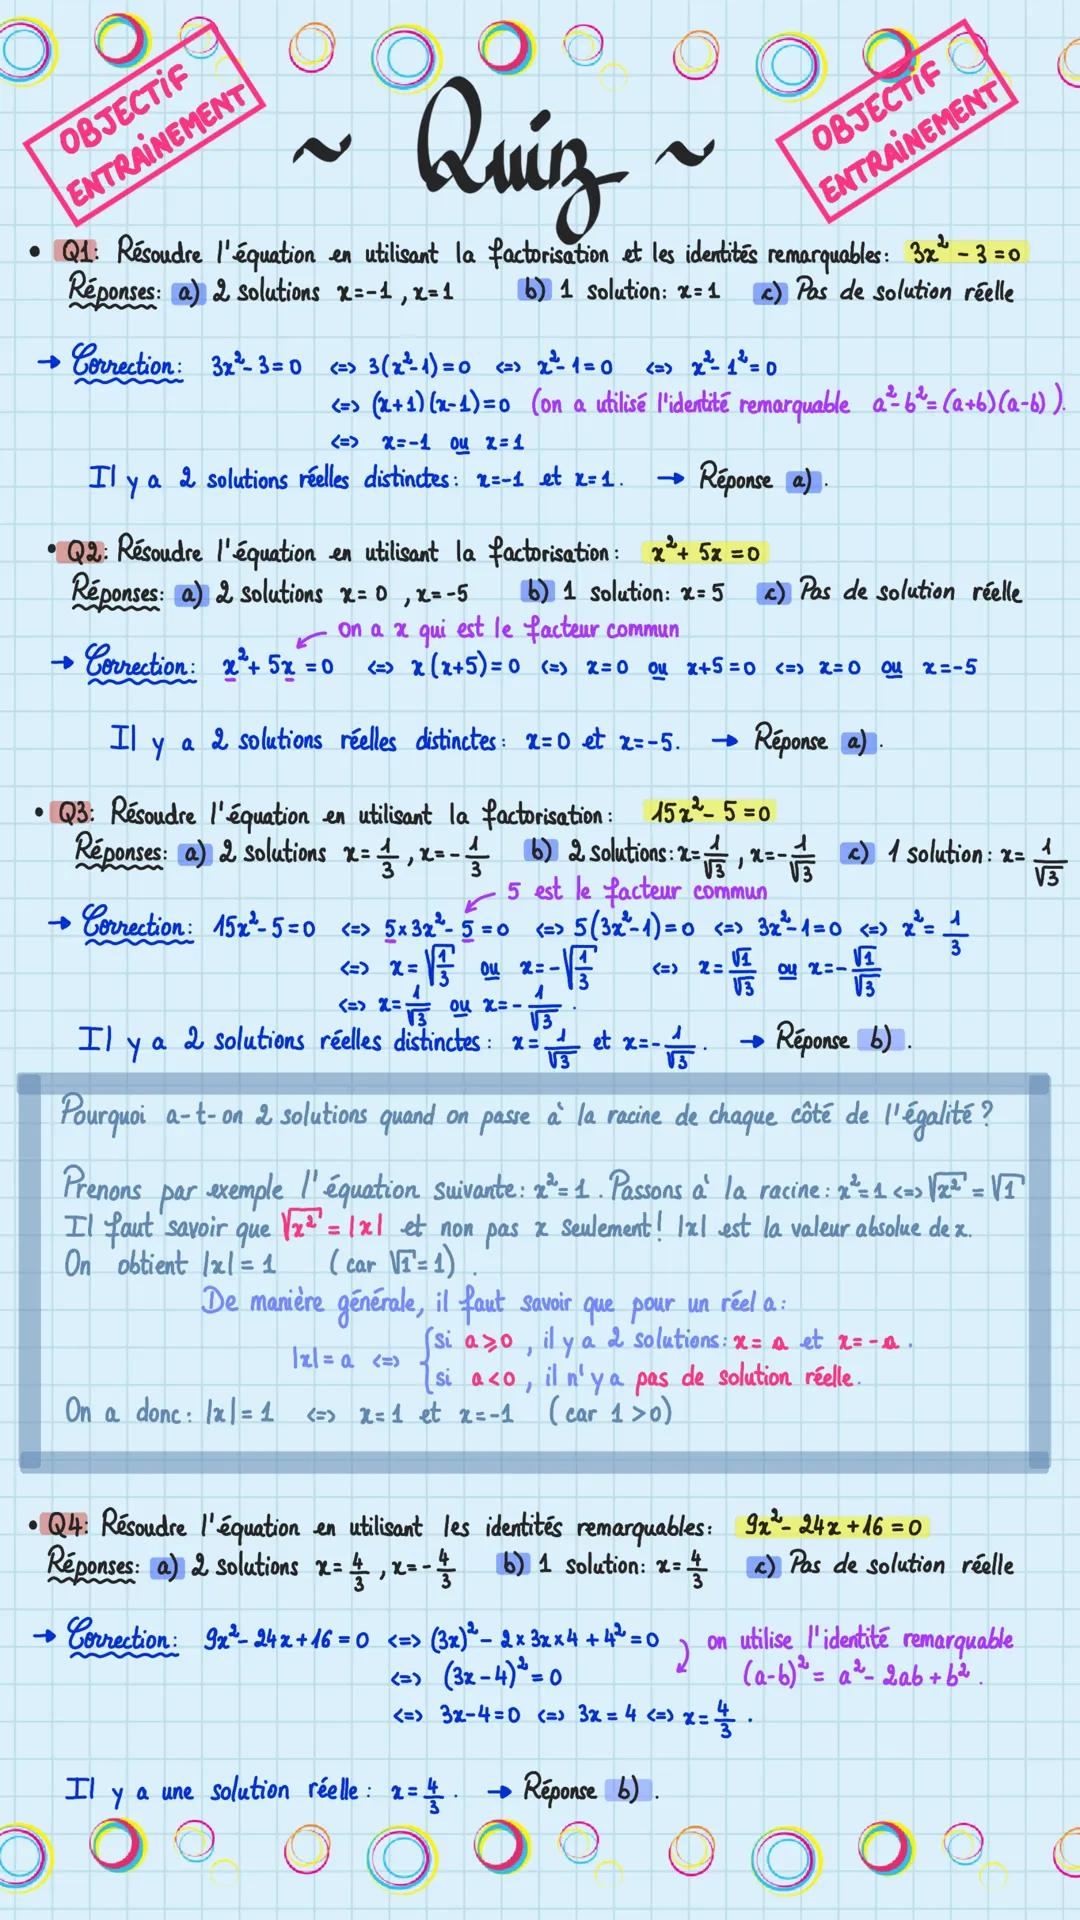 OBJECTIF
ENTRAÎNEMENT
~ Quiz ~
OBJECTIF
ENTRAÎNEMENT
• Q1: Résoudre l'équation en utilisant la factorisation et les identités remarquables: 3x² - 3 = 0
Réponses: a) 2 solutions x=-1, x=1 b) 1 solution: x=1 c) Pas de solution réelle
→ Correction: 3x²-3=0 <=> 3(x²-1)=0 <=> x²-1=0 <=> x²-1²=0
<=> (x+1)(x-1)=0 (on a utilisé l'identité remarquable a²-b²=(a+b)(a-b)).
<=> x=-1 ou x=1
Il y a 2 solutions réelles distinctes: x=-1 et x=1. → Réponse a).
• Q2: Résoudre l'équation en utilisant la factorisation: x²+ 5x = 0
Réponses: a) 2 solutions x=0, x=-5 b) 1 solution: x=5 c) Pas de solution réelle
on a x qui est le facteur commun
→ Correction: x²+5x=0 <=> x(x+5)=0 <=> x=0 ou x+5=0 <=> x=0 ou x=-5
Il y a 2 solutions réelles distinctes: x=0 et x=-5. → Réponse a).
• Q3: Résoudre l'équation en utilisant la factorisation: 15x²-5=0
Réponses: a) 2 solutions x=1/3, x=-1/3 b) 2 solutions: x=1/√3, x=-1/√3 c) 1 solution: x=1/√3
5 est le facteur commun
→ Correction: 15x²-5=0 <=> 5×3x²-5=0 <=> 5(3x²-1)=0 <=> 3x²-1=0 <=> x²=1/3
<=> x=√(1/3) ou x=-√(1/3) <=> x=√1/√3 ou x=-√1/√3
<=> x=1/√3 ou x=-1/√3.
Il y a 2 solutions réelles distinctes: x=1/√3 et x=-1/√3. → Réponse b).
Pourquoi a-t-on 2 solutions quand on passe à la racine de chaque côté de l'égalité?
Prenons par exemple l'équation suivante: x²=1. Passons à la racine: x²=1 <=> √x²=√1
Il faut savoir que √x²=|x| et non pas x seulement! |x| est la valeur absolue de x.
On obtient |x|=1 (car √1=1).
De manière générale, il faut savoir que pour un réel a:
si a⩾0, il y a 2 solutions: x=a et x=-a.
|x|=a <=> {
si a<0, il n'y a pas de solution réelle.
On a donc: |x|=1 <=> x=1 et x=-1 (car 1>0)
• Q4: Résoudre l'équation en utilisant les identités remarquables: 9x²-24x+16=0
Réponses: a) 2 solutions x=4/3, x=-4/3 b) 1 solution: x=4/3 c) Pas de solution réelle
→ Correction: 9x²-24x+16=0 <=> (3x)²-2×3x×4+4²=0 on utilise l'identité remarquable
<=> (3x-4)²=0 (a-b)²=a²-2ab+b².
<=> 3x-4=0 <=> 3x=4 <=> x=4/3.
Il y a une solution réelle: x=4/3. → Réponse b).